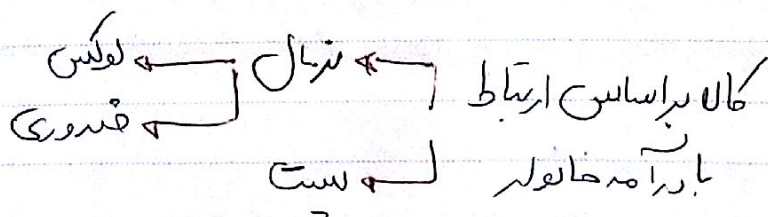 کالا براساس ارتباط
با درآمد خانوار
نرمال
لوکس
ضروری
پست